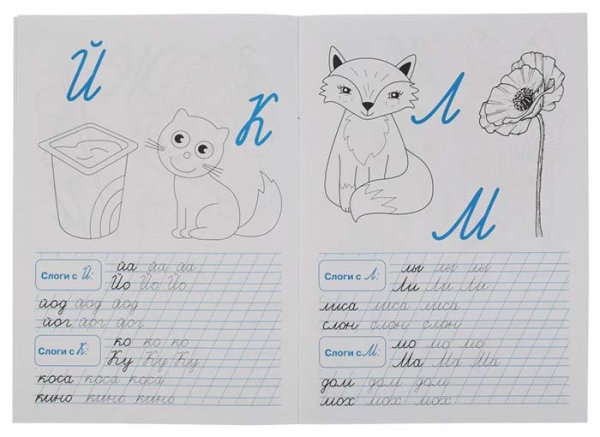 Й
К
Слоги с Й:
йа йа йа
Йо Йо Йо
йод йод йод
йог йог йог
Слоги с К:
ко ко ко
Ку Ку Ку
коса коса коса
кино кино кино
Л
М
Слоги с Л:
лы лы лы
Ли Ли Ли
лиса лиса лиса
слон слон слон
Слоги с М:
мо мо мо
Ма Ма Ма
дом дом дом
мох мох мох